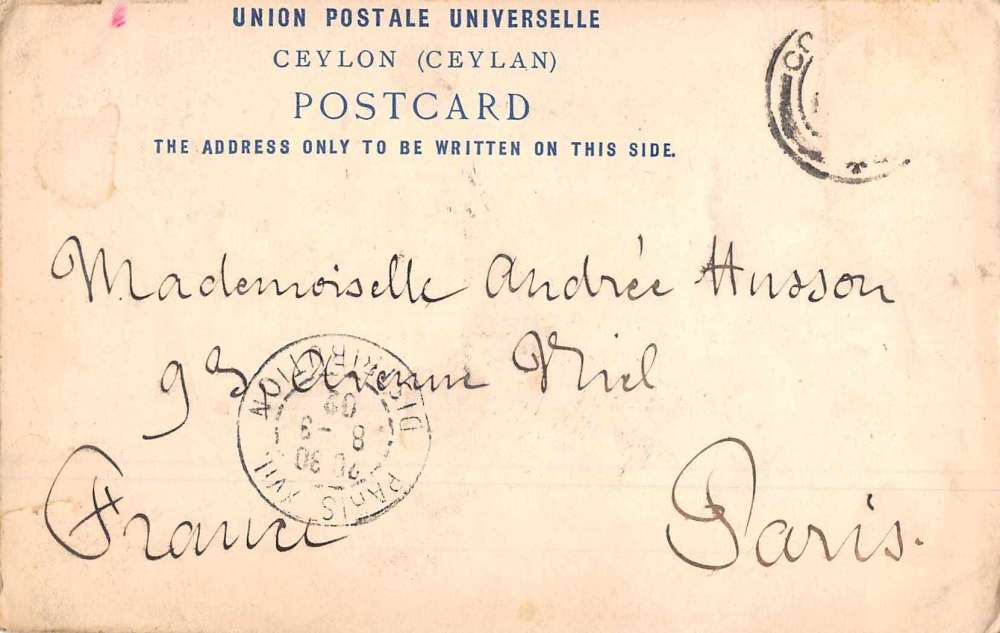 UNION POSTALE UNIVERSELLE
CEYLON (CEYLAN)
POSTCARD
THE ADDRESS ONLY TO BE WRITTEN ON THIS SIDE.
Mademoiselle Andrée Husson
9 Avenue Niel
France Paris.
PARIS XVII
DISTRIBUTION
20 30
8 - 3
02